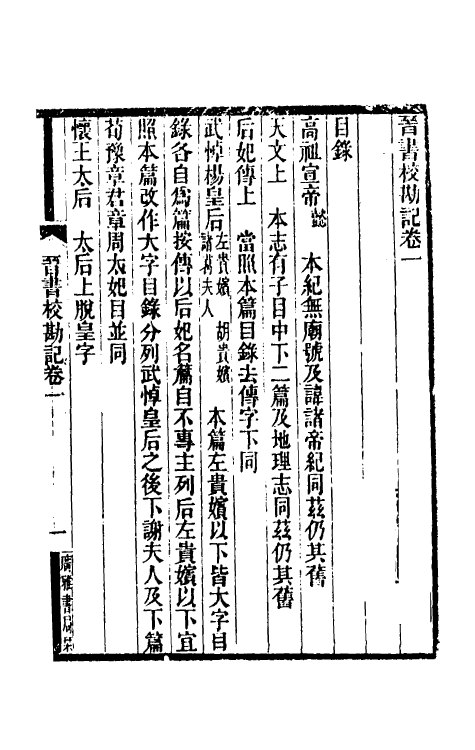 晉書校勘記卷一
目錄
高祖宣帝 懿 本紀無廟號及諱諸帝紀同茲仍其舊
天文上 本志有子目中下二篇及地理志同茲仍其舊
后妃傳上 當照本篇目錄去傳字下同
武悼楊皇后 左貴嬪 胡貴嬪 諸葛夫人 本篇左貴嬪以下皆大字目
錄各自爲篇按傳以后妃名篇自不專主列后左貴嬪以下宜
照本篇改作大字目錄分列武悼皇后之後下謝夫人及下篇
荀豫章君章周太妃目並同
懷王太后 太后上脫皇字
晉書校勘記卷一
一
廣雅書局栞